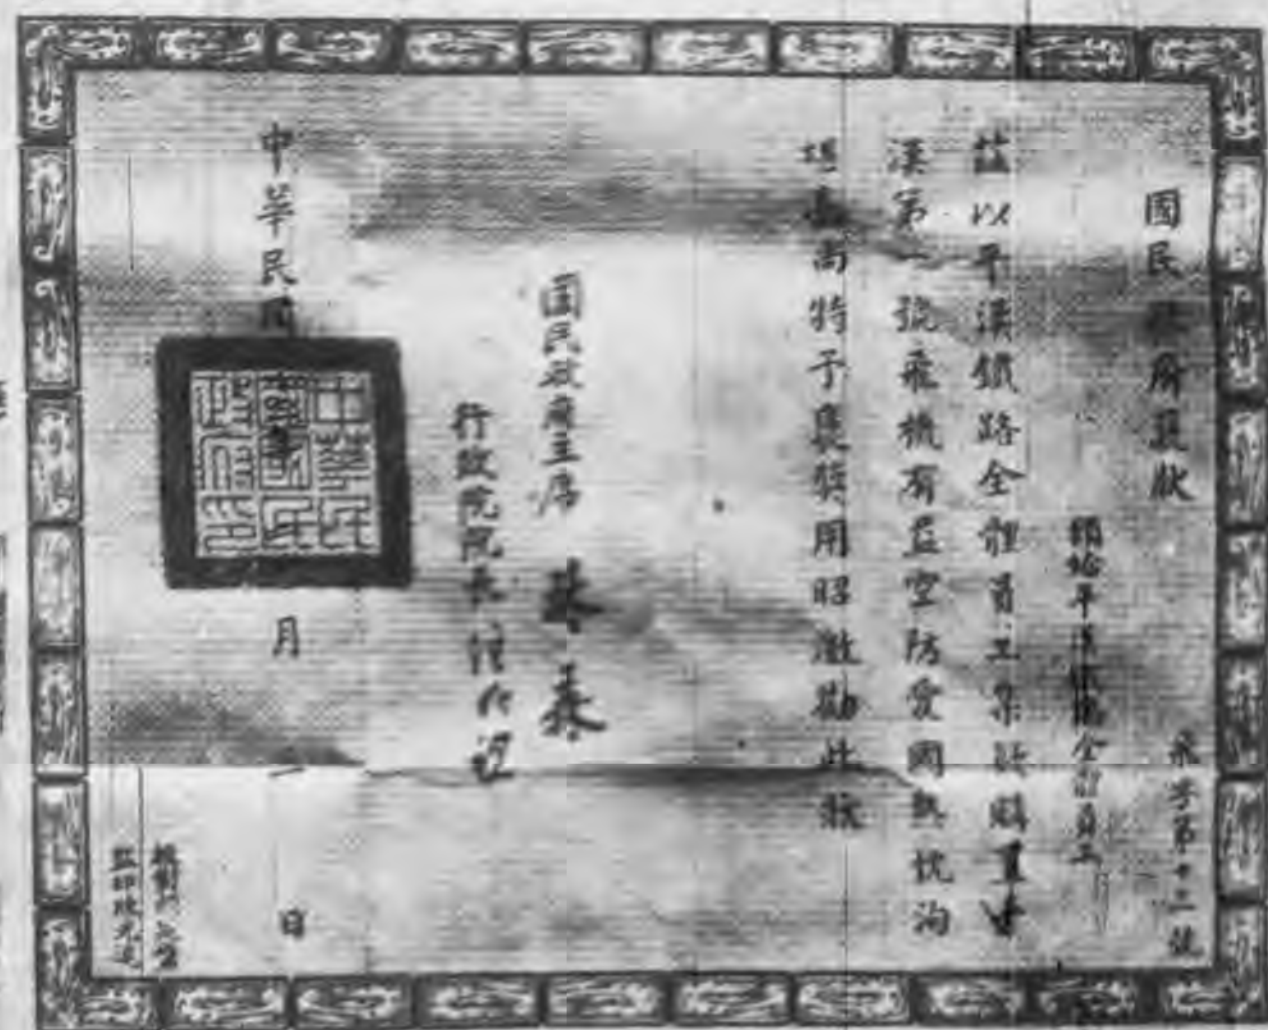 國民政府褒狀
字第十三號
頒給平漢鐵路全體員工
茲以平漢鐵路全體員工集款購置平
漢第一號飛機有益空防愛國熱忱洵
堪嘉尚特予褒獎用昭激勸此狀
國民政府主席 林森
行政院院長
中華民國 年 月 一 日
中華民國國民政府印
校對
監印